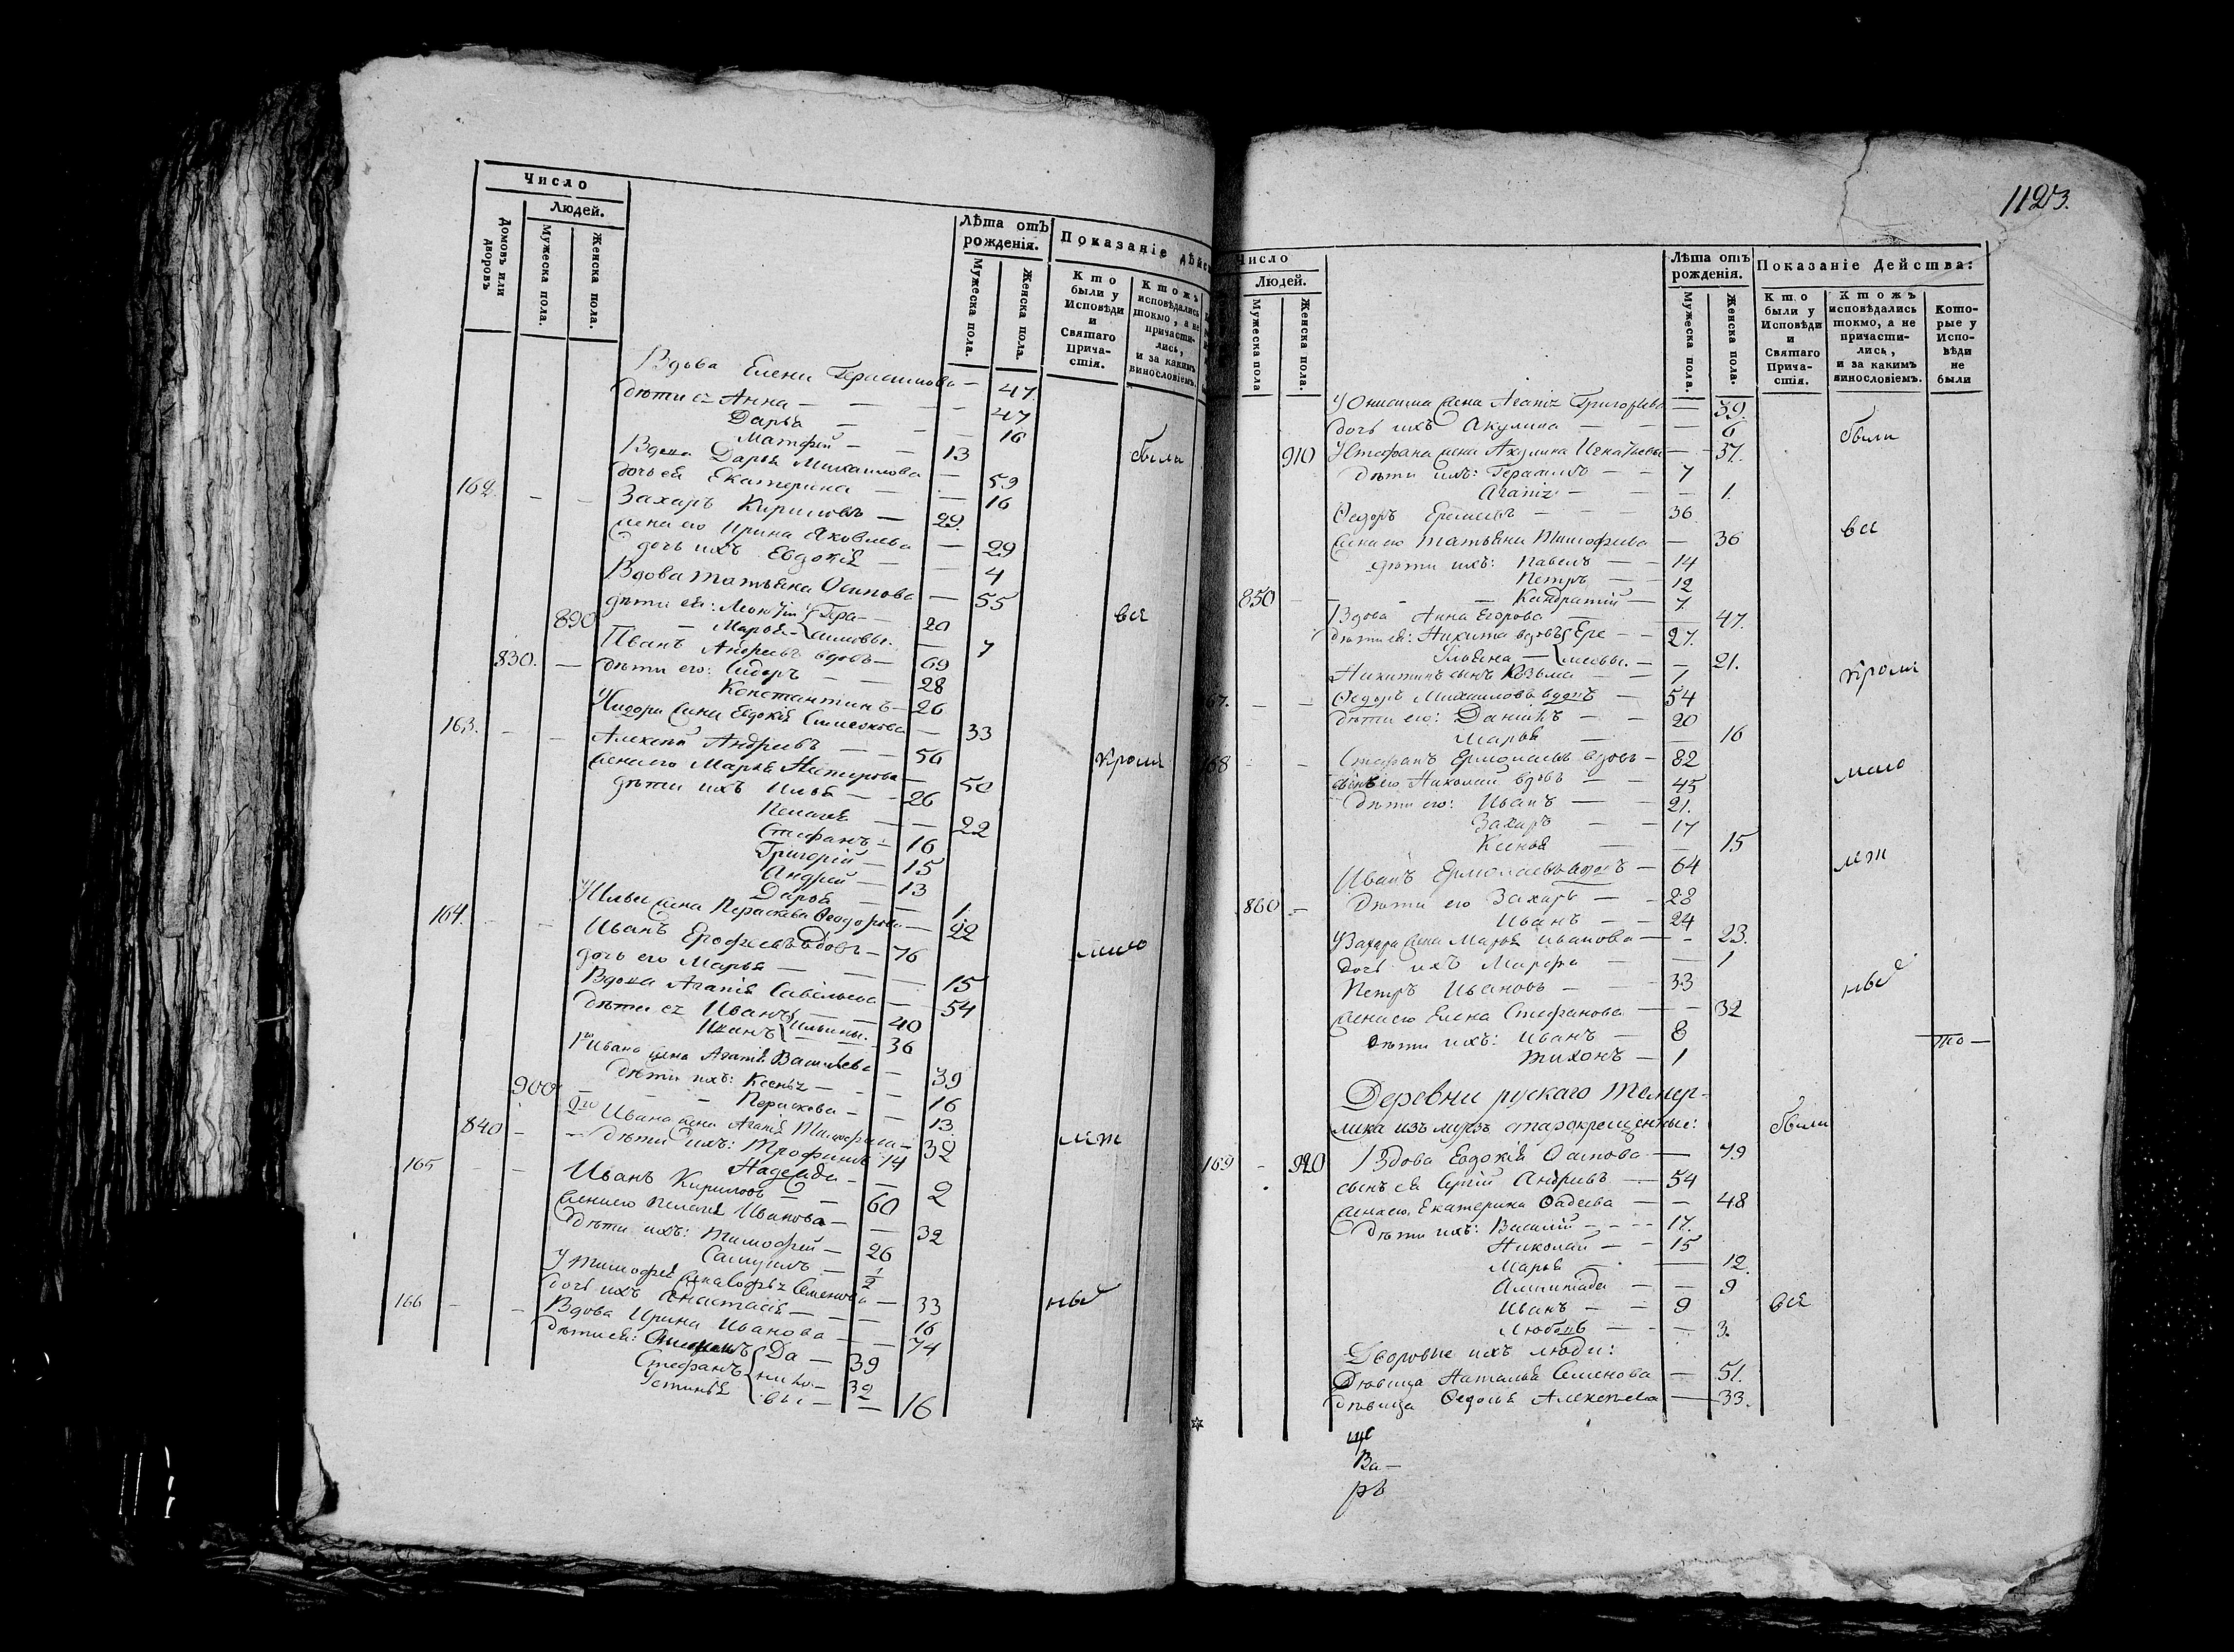 Число
Людей.
Домовъ или дворовъ
Мужеска пола.
Женска пола.
Лѣта отъ рожденія.
Мужеска пола.
Женска пола.
Показаніе дѣйс
Кто были у Исповѣди и Святаго Причастія.
Ктожъ исповѣдались токмо, а не причастились, и за какимъ винословіемъ.
Вдова Елена Герасимова — 47
дѣти ея Анна — — — 47
Дарья — — — 16
Матфей — — 13 были
Вдова Дарья Михаилова — 59
дочь ея Екатерина — — 16
162. — — Захаръ Кириловъ — 29.
жена его Ирина Яковлева — 29
дочь ихъ Евдокія — — 4
Вдова Татьяна Осипова — 55
дѣти ея: Леонтій Гера— 20 вся
890 — Марья — симовы. — 7
Иванъ Андреевъ вдовъ — 69
830. — дѣти его: Сидоръ — — 28
Константинъ — 26
У Сидора жена Евдокія Симеонова — 33
163. — — Алексѣй Андреевъ — — 56
жена его Марья Нестерова — 50 кроме
дѣти ихъ Илья — — 26
Пелагея — — 22
Стефанъ — 16
Григорій — 15
Андрей — 13
Дарья — — 1
У Ильи жена Параскева Феодорова — 22
164. — — Иванъ Ерофеевъ вдовъ — 76
дочь его Марья — — — 15 мало
Вдова Агапія Савельева — 54
дѣти ея Иванъ — — 40
Иванъ Ильины. — 36
1го Ивана жена Агапія Васильева — 39
дѣти ихъ: Ксенья — — 16
900 — — Параскева — — 13
2го Ивана жена Агапія Тимофеева — 32
840 — — дѣти ихъ: Трофимъ 14 лѣт
Надежда — — 2
165 — — Иванъ Кириловъ — — 60
жена его Пелагея Иванова — 32
дѣти ихъ: Тимофей — 26
Самуилъ — 1/2
У Тимофея жена Софья Семенова — 33
дочь ихъ Анастасія — — 16 ных
166 — — Вдова Ирина Иванова — — 74
дѣти ея: Да — 39
Стефанъ нило— 32
Устинья вы — — 16
1123.
Число
Людей.
Мужеска пола
Женска пола.
Лѣта отъ рожденія.
Мужеска пола.
Женска пола.
Показаніе Действа:
Кто были у Исповѣди и Святаго Причастія.
Ктожъ исповѣдались токмо, а не причастились, и за какимъ винословіемъ.
Которые у Исповѣди не были
У Онисима жена Агапія Григорьева — 39.
дочь ихъ Акулина — — — 6 были
910 У Стефана жена Акулина Игнатьева — 37.
дѣти ихъ: Герасимъ — — 7
Агапія — — — 1.
Федоръ Еремеевъ — — — 36 вся
жена его Татьяна Тимофеева — 36
дѣти ихъ: Павелъ — — 14
Петръ — — 12
850 — — — Кандратій — 7.
Вдова Анна Егорова — — 47.
дѣти ея: Никита вдовъ Ере — — 27.
Ульяна — меевы. — — 21.
Никитинъ сынъ Козьма — — 7 кроме
67. — — Федоръ Михаиловъ вдовъ — 54
дѣти его: Даніилъ — — 20
Марья — — — 16
168 — — Стефанъ Ермолаевъ вдовъ — 82
сынъ его Николай вдовъ — — 45 мало
дѣти его: Иванъ — — 21.
Захаръ — — 17
Ксенья — — 15
Иванъ Ермолаевъ вдовъ — 64 лѣт
860 — Дѣти его Захаръ — — 28
Иванъ — — 24
У Захара жена Марья Иванова — — 23.
дочь ихъ Марфа — — 1
Петръ Ивановъ — — — 33 ных
жена его Елена Стефанова — — 32
дѣти ихъ: Иванъ — 8 то —
Тихонъ — 1
Деревни рускаго Темер-
лика изъ мурзъ старокрещенные: были
169 — 920 Вдова Евдокія Осипова — 79
сынъ ея Сергій Андреевъ — 54
жена его Екатерина Фадеева — — 48
дѣти ихъ: Василій — — — 17.
Николай — — 15
Марья — — 12.
Олимпіада — — 9
Иванъ — — 9 вся
Любовь — — — 3.
Дворовые ихъ люди:
Дѣвица Наталья Семенова — 51.
дѣвица Федосья Алексѣева — 33.
ще
Ва—
ръ